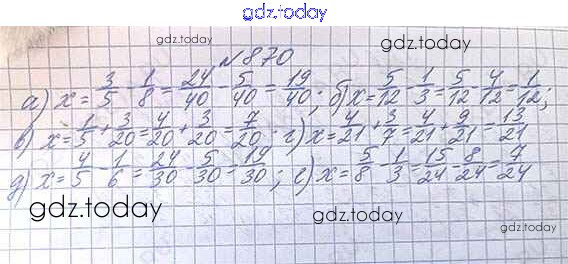 gdz.today
gdz.today
№870
а) x = 3/5 - 1/8 = 24/40 - 5/40 = 19/40; б) x = 5/12 - 1/3 = 5/12 - 4/12 = 1/12;
в) x = 1/5 + 3/20 = 4/20 + 3/20 = 7/20. г) x = 4/21 + 3/7 = 4/21 + 9/21 = 13/21
д) x = 4/5 - 1/6 = 24/30 - 5/30 = 19/30; е) x = 5/8 - 1/3 = 15/24 - 8/24 = 7/24
gdz.today
gdz.today
gdz.today